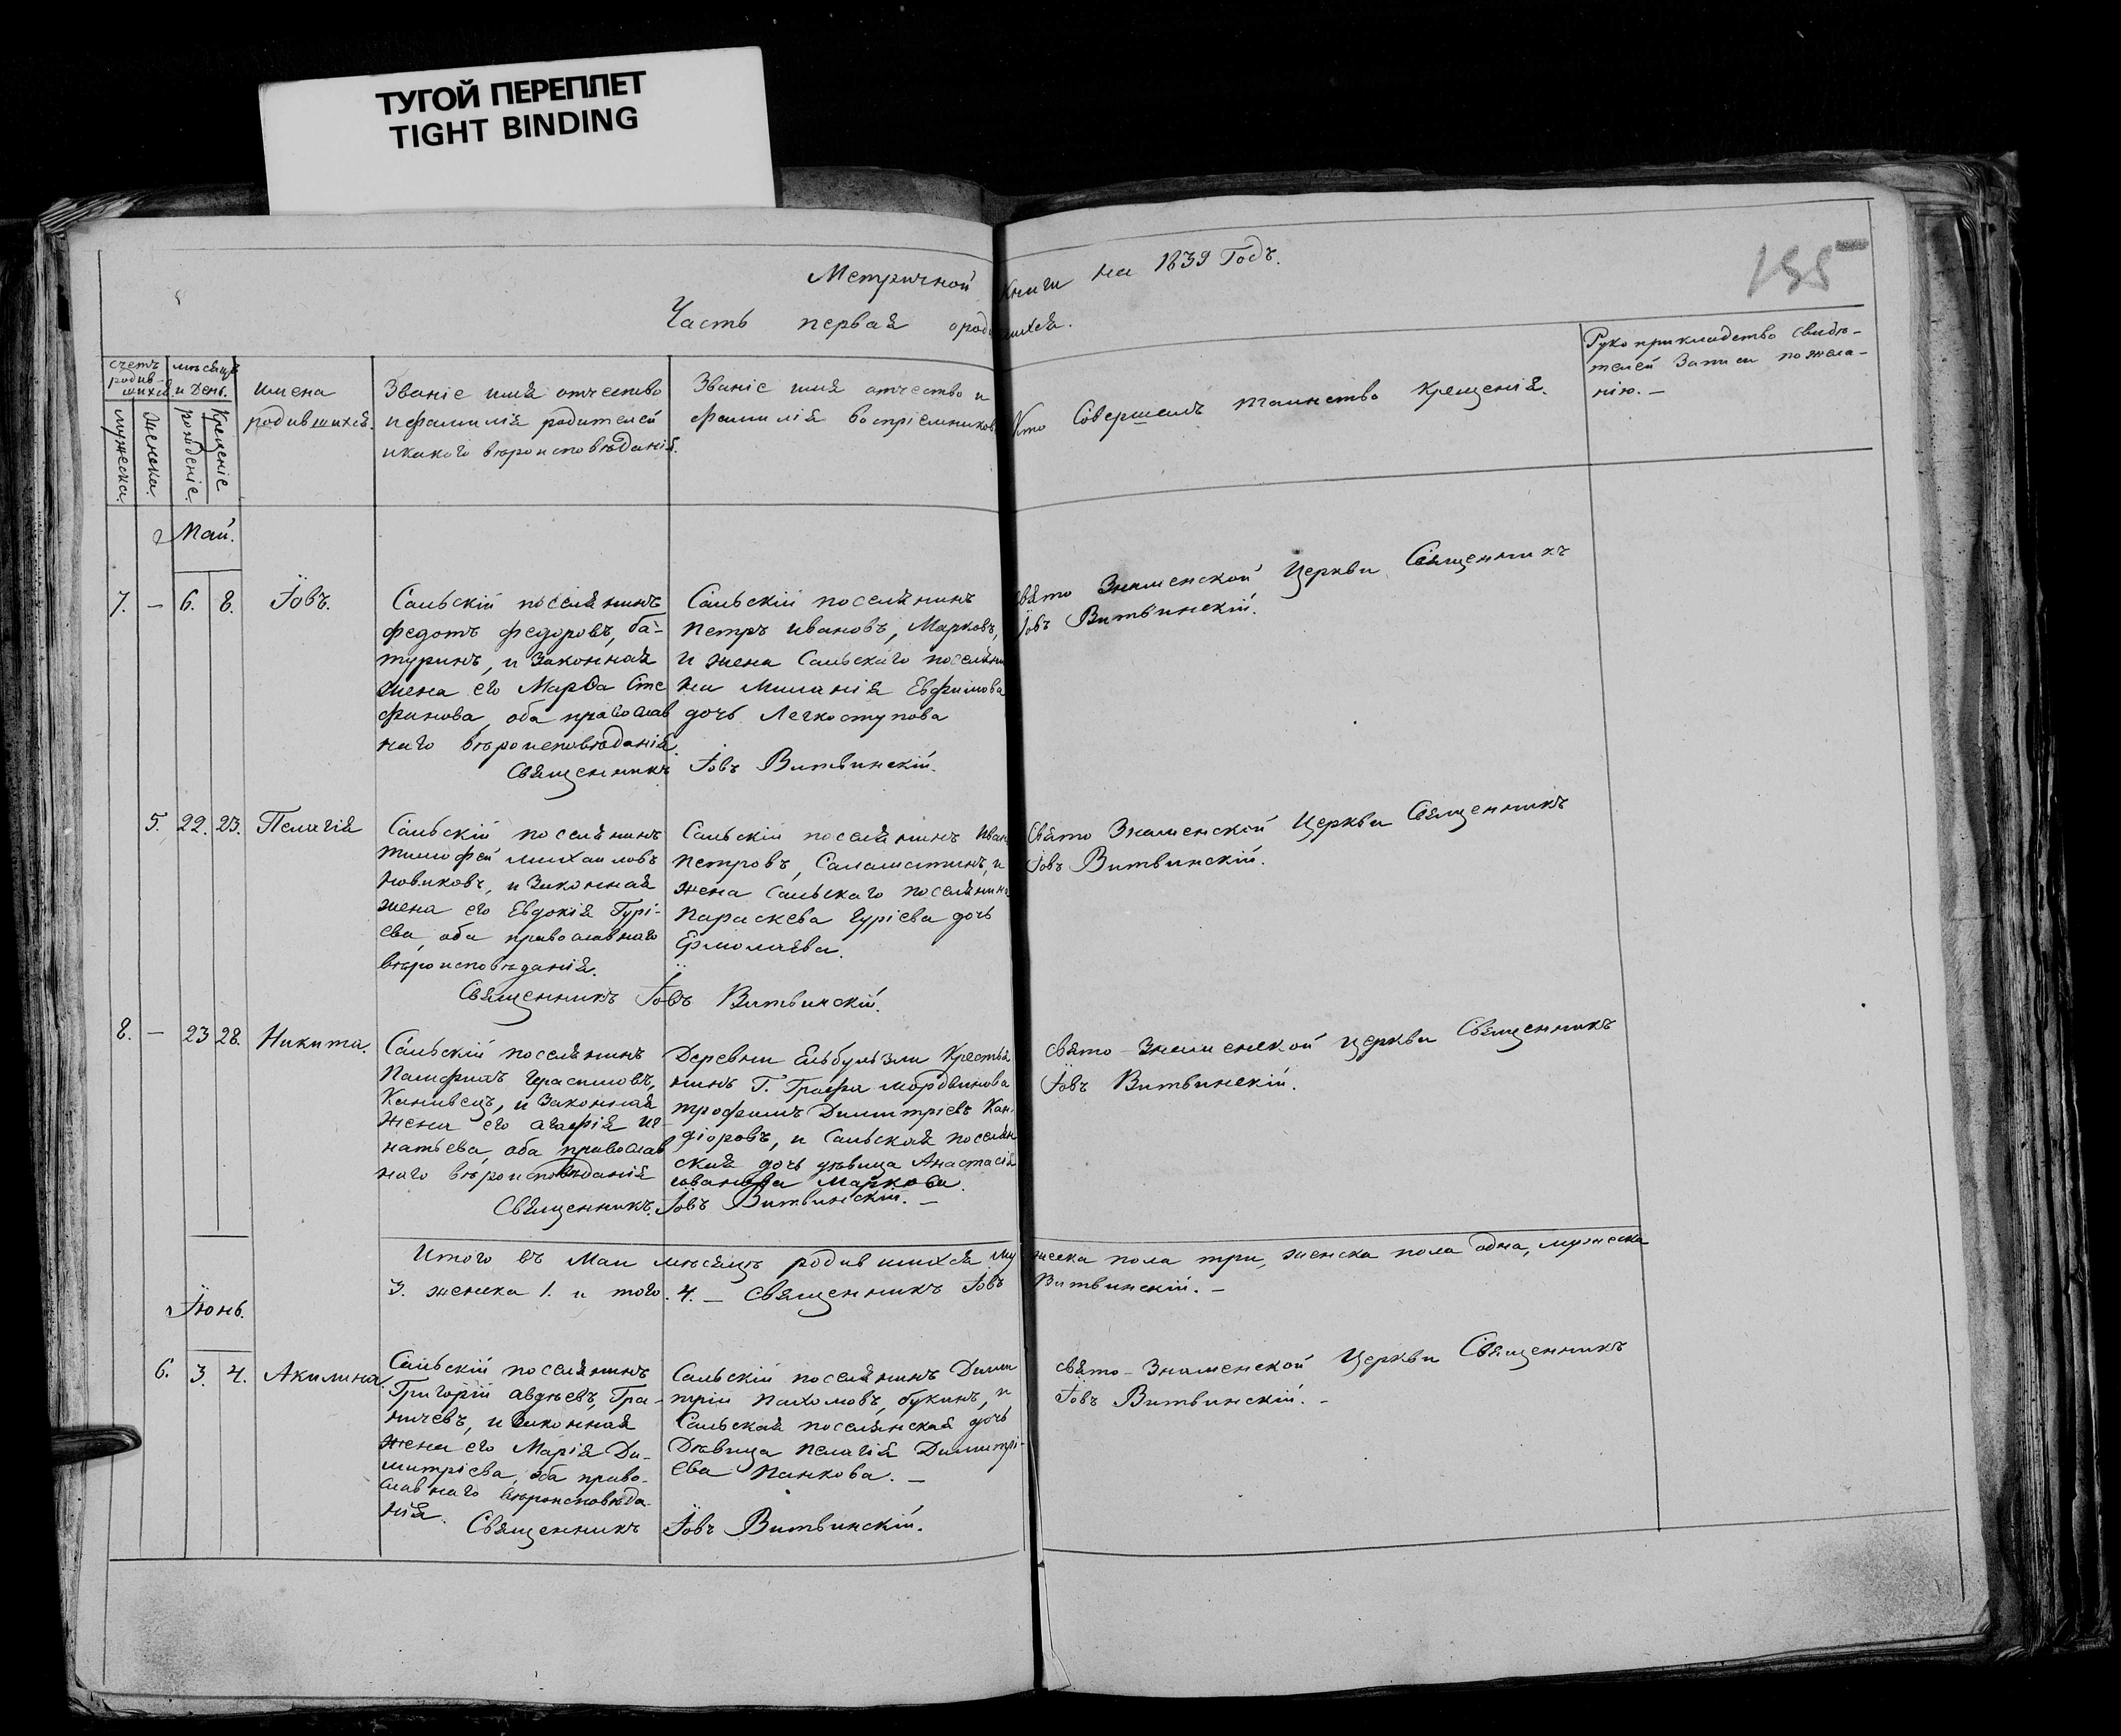 ТУГОЙ ПЕРЕПЛЕТ
TIGHT BINDING
Метричной книги на 1839 Годъ.
195
Часть первая ородившихся.
счетъ родив-шихся.
мѣсяцъ и День.
мужеска.
женска.
рожденіе.
Крещеніе
имена
родившихся.
Званіе имя отчество
ифамилія родителей
икакого вѣроисповѣданія.
Званіе имя отчество и
фамилія воспріемниковъ
Кто Совершалъ таинство крещенія.
Рукоприкладство свидѣ-
телей Записи пожела-
нію. —
Май.
7. — 6. 8. Іовъ.
Сальскій поселянинъ
федотъ федоровъ, ба-
туринъ, и Законная
жена его Марѳа Сте
фанова, оба православ
наго вѣроисповѣданія.
Сальскій поселянинъ
Петръ ивановъ, Марковъ,
и жена Сальскаго поселяни
на Миланія Евфимова
дочь Легкоступова
Священникъ Іовъ Витвинскій.
свято Знаменской Церкви Священникъ
Іовъ Витвинскій.
5. 22. 23. Пелагія
Сальскій поселянинъ
тимофей михаиловъ
новиковъ, и Законная
жена его Евдокія Гурі-
ева, оба православнаго
вѣроисповѣданія.
Сальскій поселянинъ Иван
петровъ, Саламатинъ, и
жена Сальскаго поселянина
параскева Гуріева дочь
Ермолаева.
Священникъ Іовъ Витвинскій.
Свято Знаменской Церкви Священникъ
Іовъ Витвинскій.
8. — 23 28. Никита.
Сальскій поселянинъ
Памфилъ Герасимовъ,
Каливецъ, и Законная
жена его агафія иг-
натьева, оба православ
наго вѣроисповѣданія
Деревни Ельбузли Крестья
нинъ Г. Графа мордвинова
трофимъ Димитріевъ Кан-
діоровъ, и Сальская поселян
ская дочь дѣвица Анастасія
иванова Маркова.
Священникъ. Іовъ Витвинскій. —
свято-Знаменской церкви Священникъ
Іовъ Витвинскій.
Итого въ Маи мѣсяцѣ родившихся мужеска пола три, женска пола одна, мужеска
3. женска 1. и того. 4. — Священникъ Іовъ Витвинскій. —
Іюнь.
6. 3. 4. Акилина
Сальскій поселянинъ
Григорій авдѣевъ, Гра-
ничевъ, и Законная
жена его Марія Ди-
митріева, оба право-
славнаго вѣроисповѣда-
нія.
Сальскій поселянинъ Дими
трій пахомовъ, букинъ, и
Сальская поселянская дочь
Дѣвица пелагія Димитрі-
ева Панкова. —
Священникъ Іовъ Витвинскій.
свято-Знаменской Церкви Священникъ
Іовъ Витвинскій. —